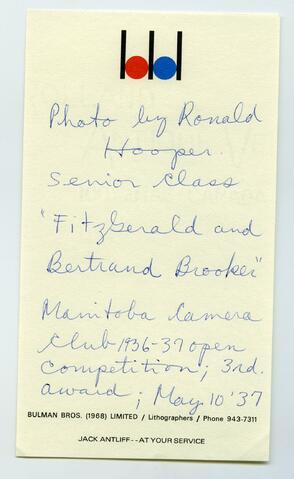 Photo by Ronald
Hooper.
Senior Class
"FitzGerald and
Bertrand Brooker"
Manitoba Camera
Club 1936-37 open
competition; 3rd.
award; May 10 '37
BULMAN BROS. (1968) LIMITED / Lithographers / Phone 943-7311
JACK ANTLIFF--AT YOUR SERVICE